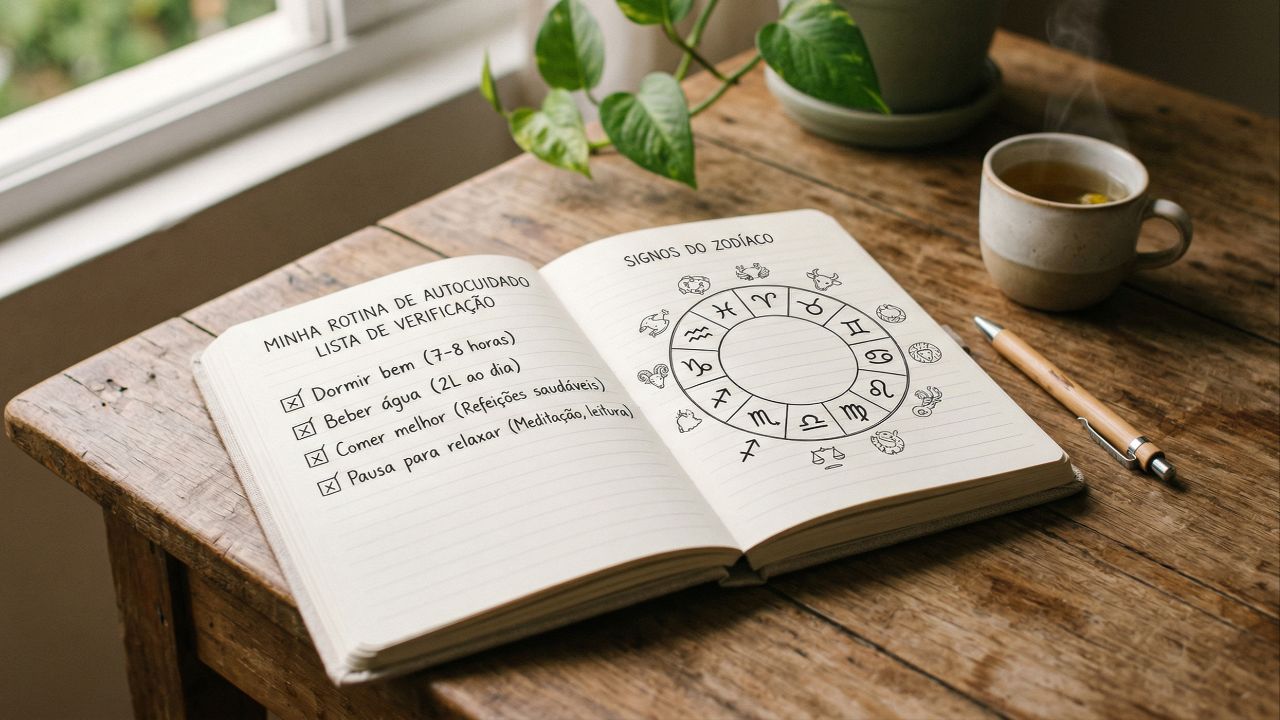 MINHA ROTINA DE AUTOCUIDADO
LISTA DE VERIFICAÇÃO
Dormir bem (7-8 horas)
Beber água (2L ao dia)
Comer melhor (Refeições saudáveis)
Pausa para relaxar (Meditação, leitura)
SIGNOS DO ZODÍACO